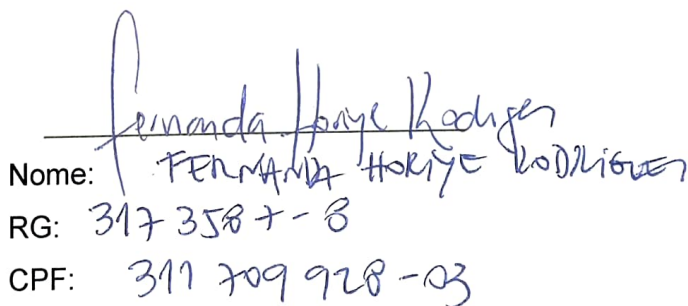 Fernanda Horiye Rodrigues
Nome: FERNANDA HORIYE RODRIGUES
RG: 317 358 7 - 8
CPF: 311 709 928 - 03